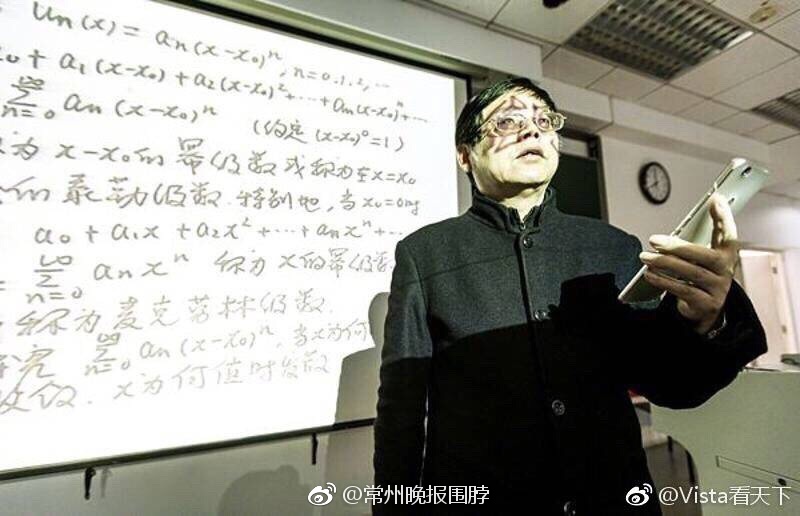 Un(x) = an(x-x0)^n, n=0,1,2,...
0 + a1(x-x0) + a2(x-x0)^2 + ... + an(x-x0)^n + ...
∞∑n=0 an(x-x0)^n (约定(x-x0)^0=1)
为 x-x0的幂级数或称为在x=x0
的泰勒级数.特别地,当x0=0时
a0 + a1x + a2x^2 + ... + anx^n + ...
= ∞∑n=0 anx^n 称为x的幂级数
称为麦克劳林级数.
究 ∞∑n=0 an(x-x0)^n,当x为何
收敛.x为何值时发散
@常州晚报围脖
@Vista看天下